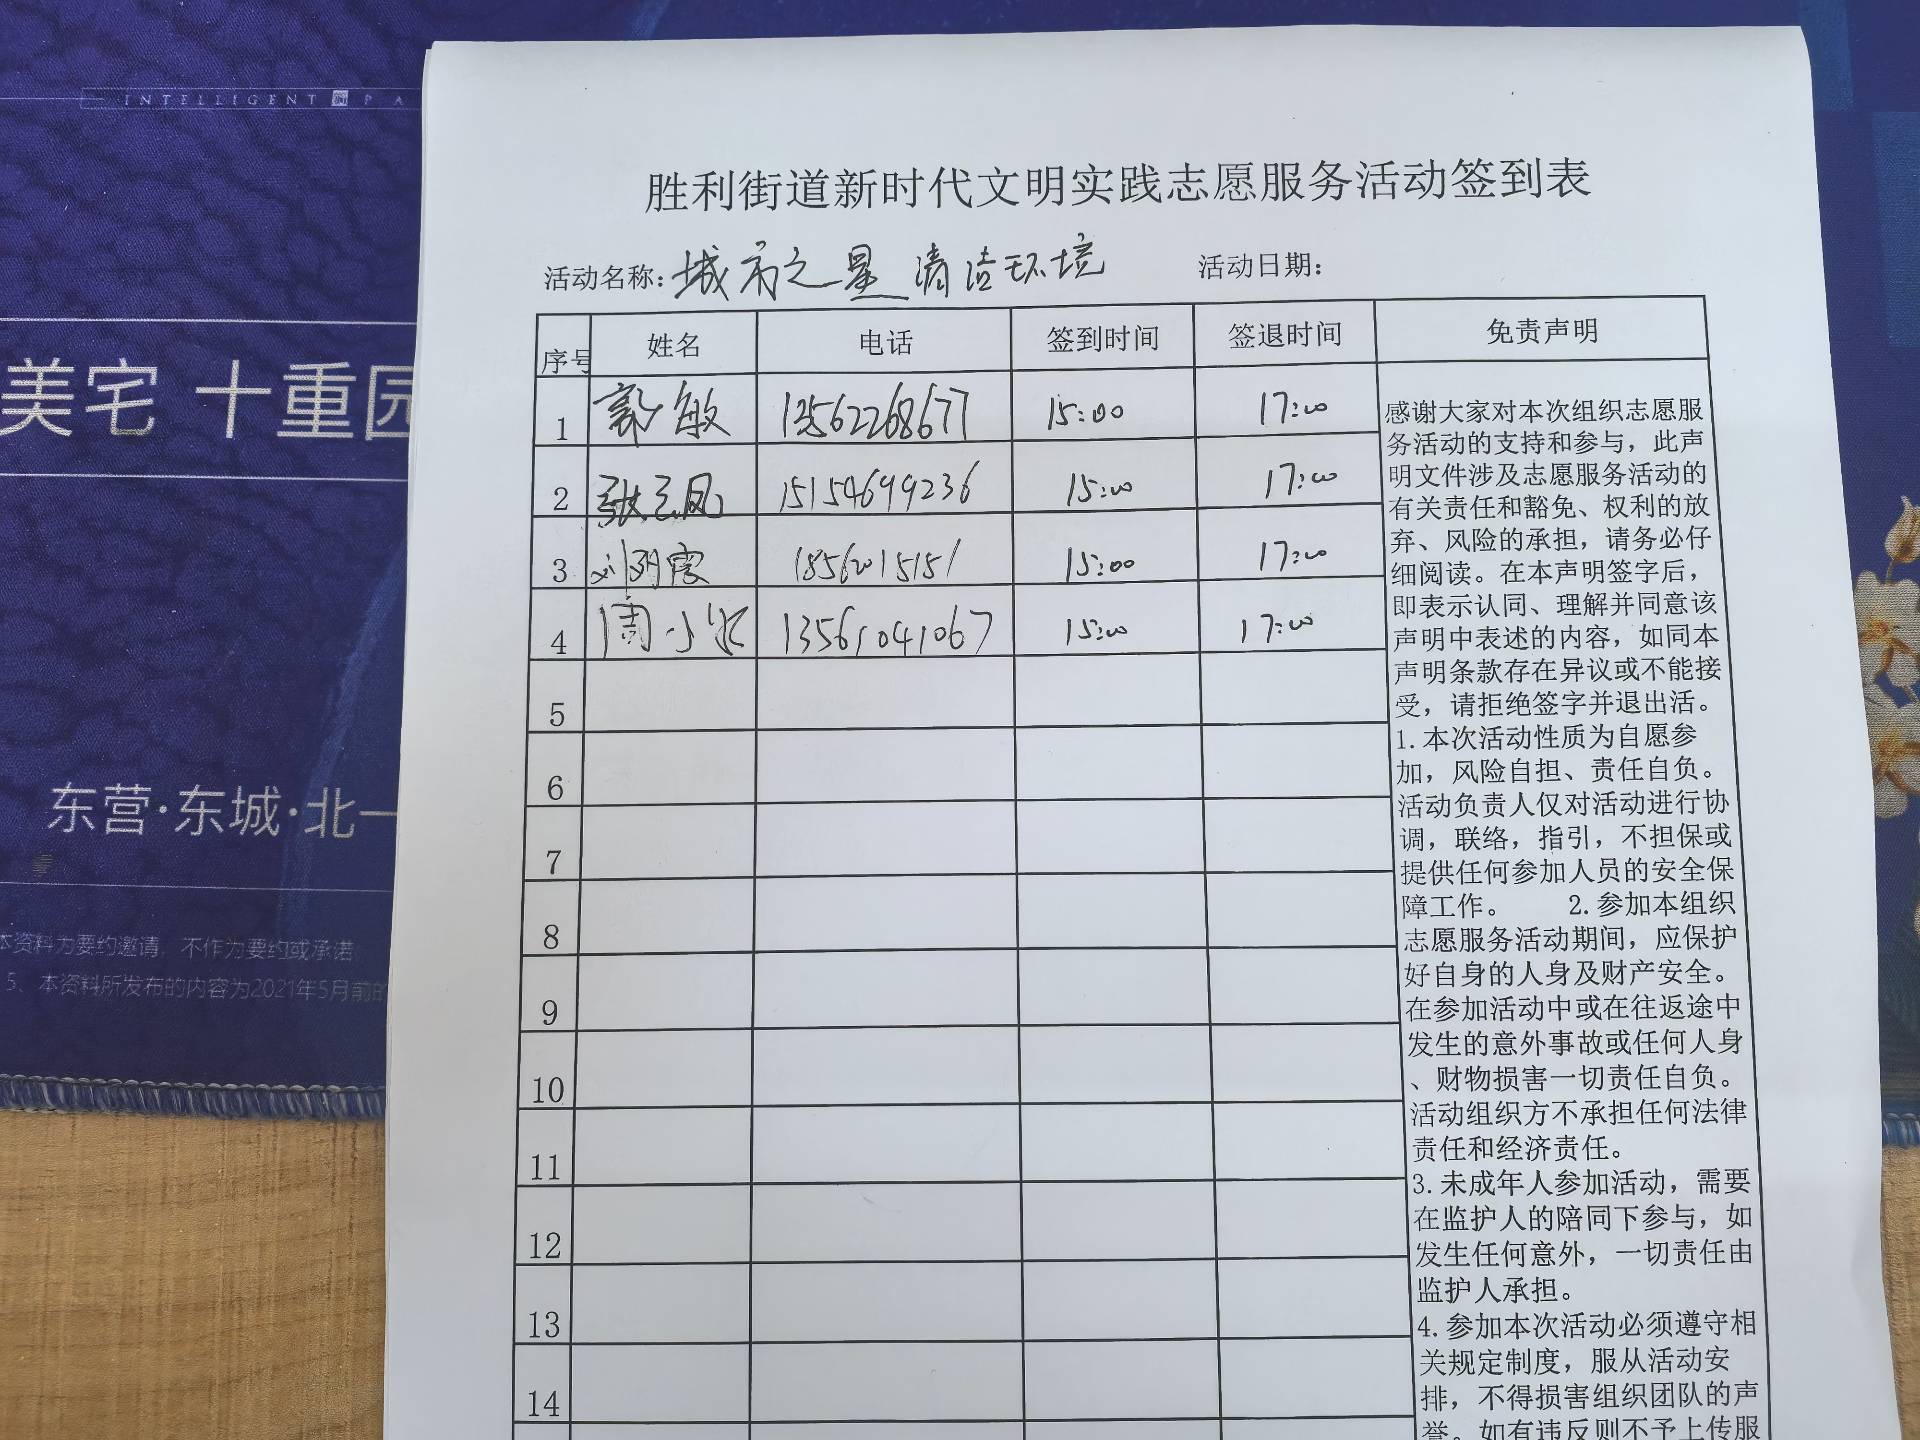 INTELLIGENT PA
美宅 十重园
东营·东城·北一
本资料为要约邀请，不作为要约或承诺
5、本资料所发布的内容为2021年5月前的
胜利街道新时代文明实践志愿服务活动签到表
活动名称：城市之星清洁环境 活动日期：
序号 姓名 电话 签到时间 签退时间 免责声明
1 郭敏 13562268677 15:00 17:00
2 张 凤 15154699236 15:00 17:00
3 刘 霞 18562015151 15:00 17:00
4 周小 13561041067 15:00 17:00
5
6
7
8
9
10
11
12
13
14
感谢大家对本次组织志愿服
务活动的支持和参与，此声
明文件涉及志愿服务活动的
有关责任和豁免、权利的放
弃、风险的承担，请务必仔
细阅读。在本声明签字后，
即表示认同、理解并同意该
声明中表述的内容，如同本
声明条款存在异议或不能接
受，请拒绝签字并退出活。
1.本次活动性质为自愿参
加，风险自担、责任自负。
活动负责人仅对活动进行协
调，联络，指引，不担保或
提供任何参加人员的安全保
障工作。 2.参加本组织
志愿服务活动期间，应保护
好自身的人身及财产安全。
在参加活动中或在往返途中
发生的意外事故或任何人身
、财物损害一切责任自负。
活动组织方不承担任何法律
责任和经济责任。
3.未成年人参加活动，需要
在监护人的陪同下参与，如
发生任何意外，一切责任由
监护人承担。
4.参加本次活动必须遵守相
关规定制度，服从活动安
排，不得损害组织团队的声
誉。如有违反则不予上传服